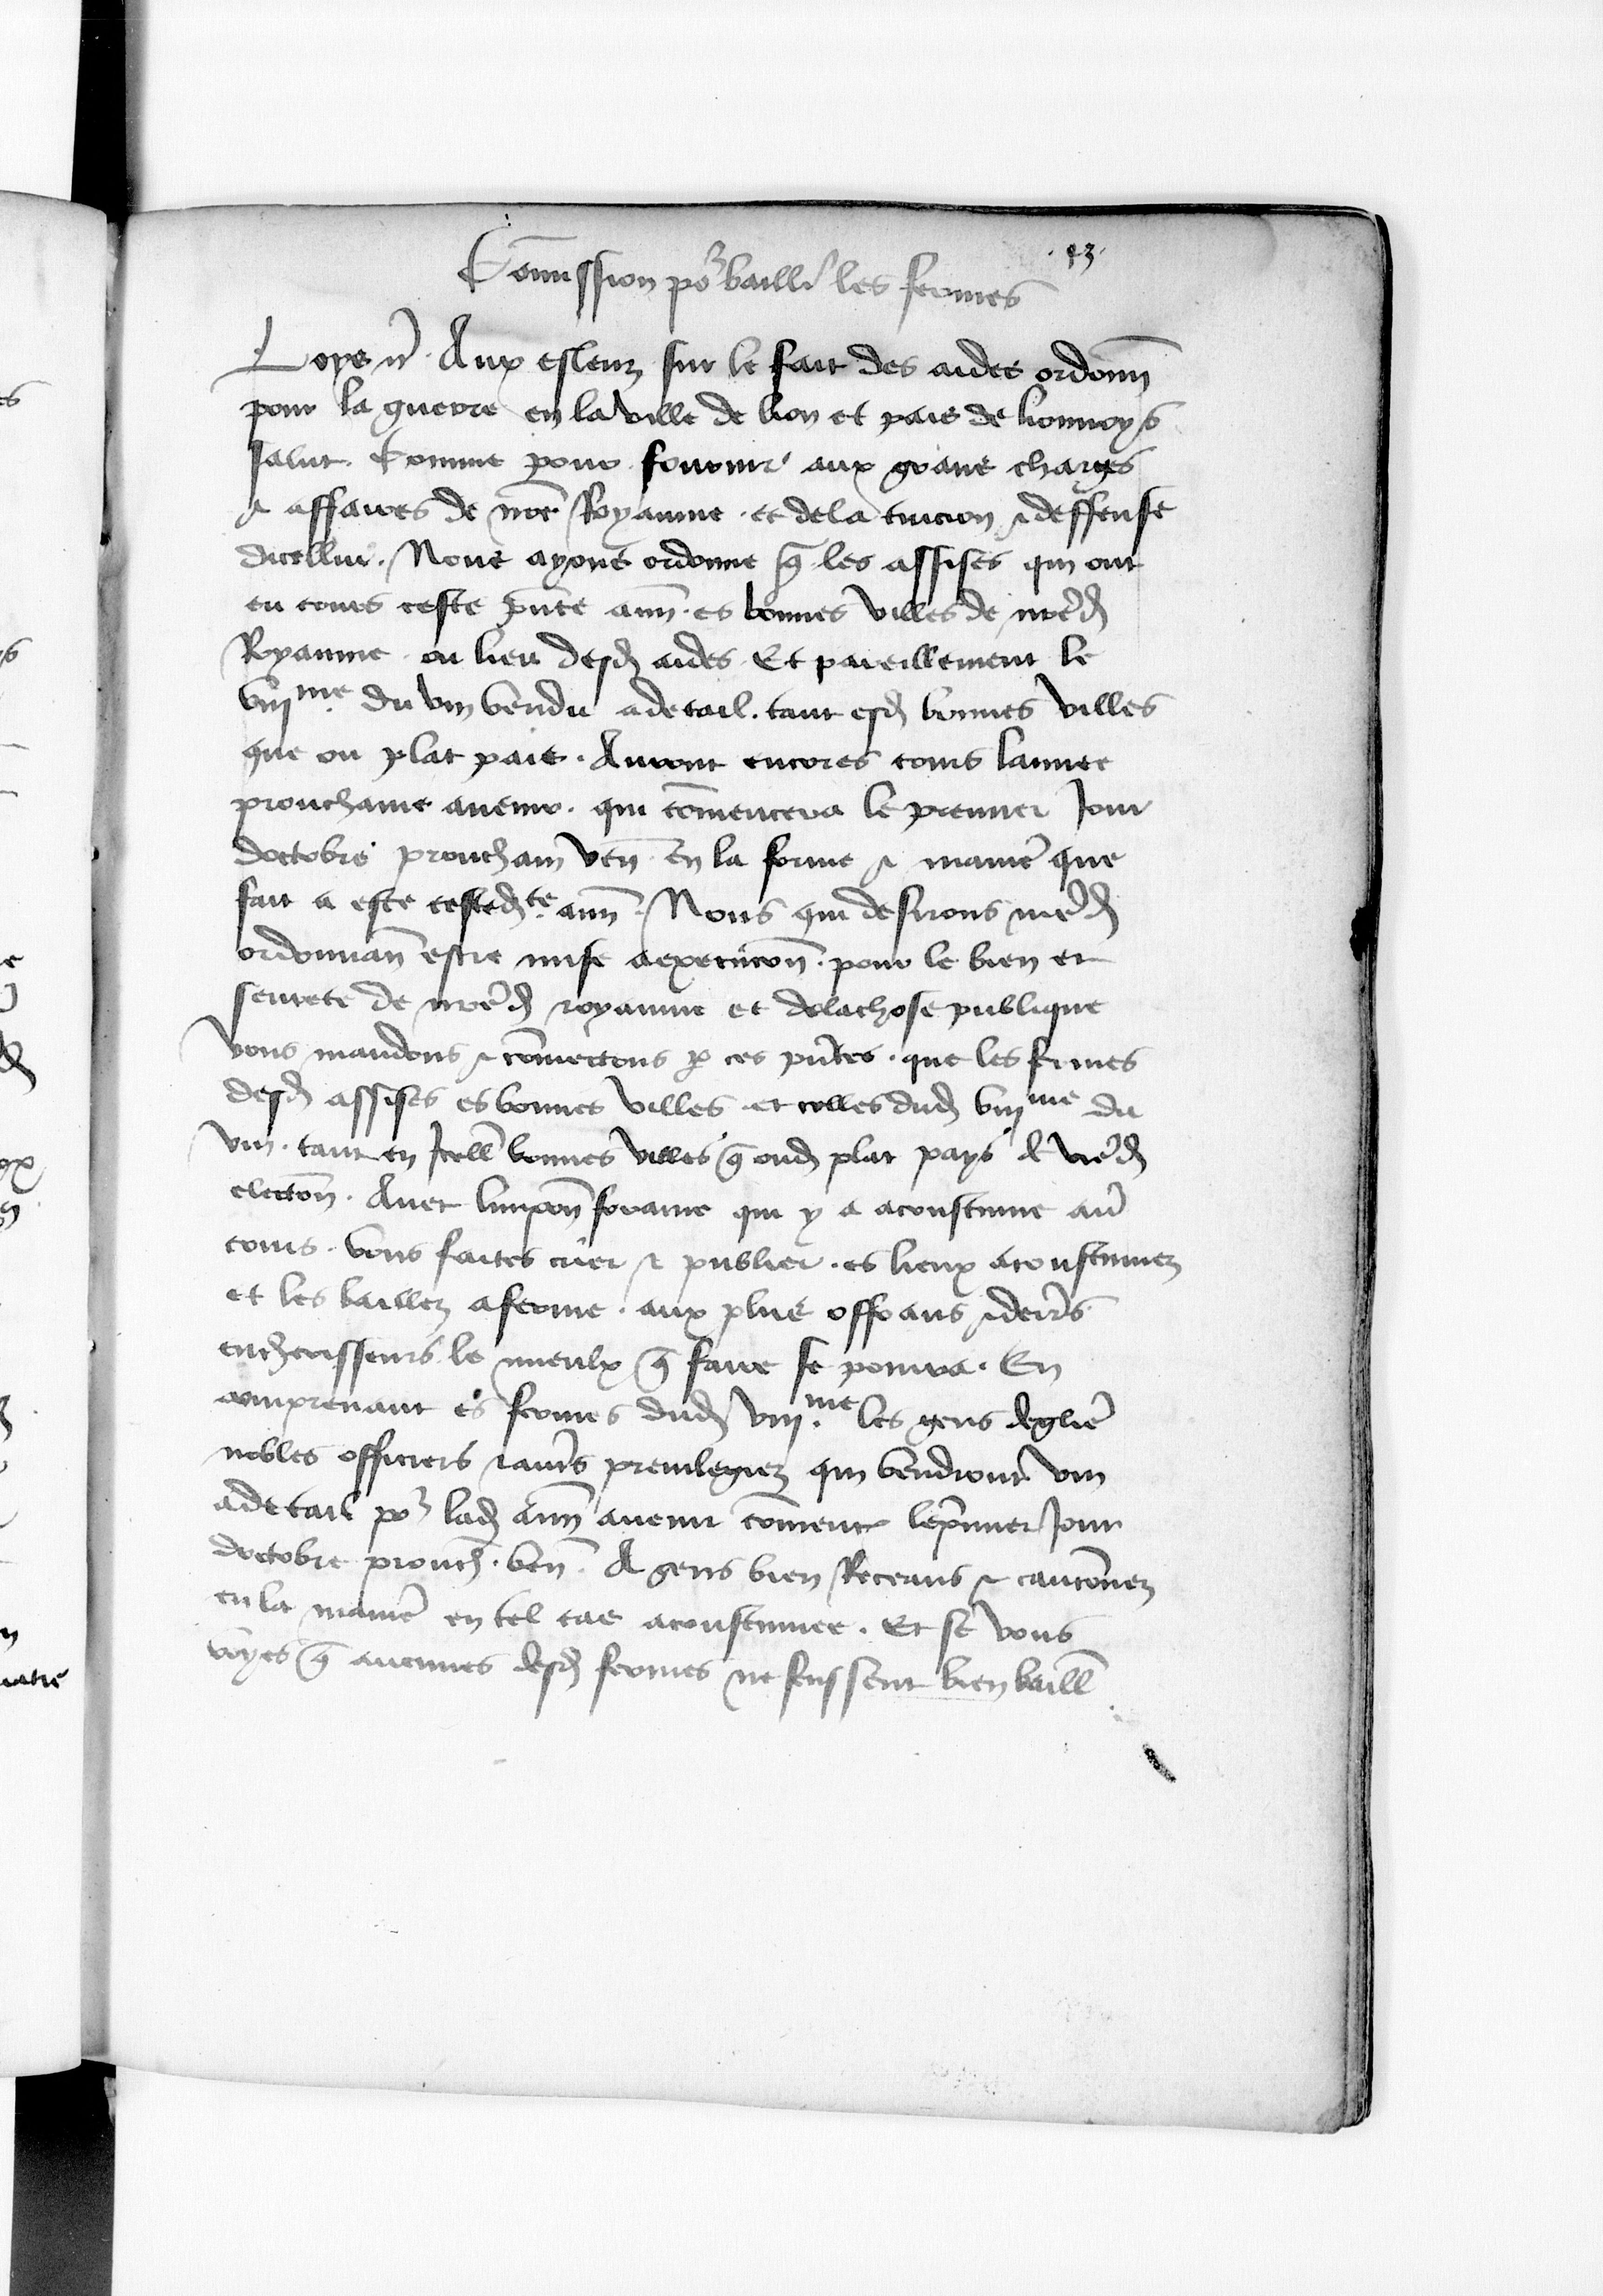 .43.
Com̄ission po᷑ baill᷑ les fermes
Loys &c̃. Aux esleuz sur le fait des aides ordonn̄
pour la guerre en la ville de lion et pais de lionnoys
salut. Comme pour fournir aux grans charges
& affaires de nr̄e Royaume . et dela tuicion & deffense
dicellui . Nous ayons ordonne q̄ les assises qui ont
eu cours ceste pn̄te ann̄ . es bonnes villes de nr̄ed̄
Royaume . ou lieu desd̄ aides . Et pareillement le
viij me. du vin vendu adetail . tant esd̄ bonnes villes
que ou plat pais . Auront encores cours lannee
prouchaine auenir . qui com̄encera le premier Jour
doctobre prouchain ven̄ . En la forme & manier̄ que
fait a este cested̄ te. ann̄ . Nous qui desirons nr̄ed̄
ordonnan̄ estre mise aexecucon̄ . pour le bien et
seurete de nr̄ed̄ royaume et delachose publique
vous mandons & com̄ectons p̱ ces pn̄tes . que les fermes
desd̄ assises es bonnes villes . et celles dud̄ viij me du
vin . tant en Icell̄ bonnes villes q̄ oud̄ plat pays de vr̄ed̄
election̄ . Auec limposon̄ foraine qui y a acoustume auoir̄
cours . vous faites crier & publier . es lieux acoustumez
et les baillez aferme . aux plus offrans & derr̄s
encherisseurs le mieulx q̄ faire se pourra . En
comprenant es fermes dud̄ viij. me les gens deglis̄e
nobles officiers & autr̄s preuilegiez qui vendront vin
adetail po᷑ lad̄ ann̄ auenir com̄enc̄ lepremier Jour
doctobre prouch̄ . ven̄ . A gens bien Receans & caucion̄nez
en la manier̄ en tel cas acoustumee . Et se vous
voyes q̄ aucunes desd̄ fermes ne feussent bien baill̄